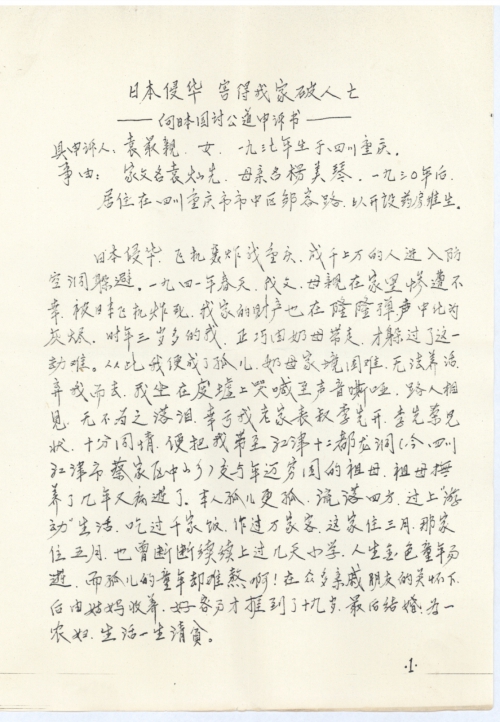 日本侵华 害得我家破人亡
——向日本国讨公道申诉书——
具申诉人：袁最親，女，一九三七年生于四川重庆。
事由：家父名袁灿先，母亲名楊美琴，一九三〇年后
居住在四川重庆市市中区邹容路，以开设药房维生。
日本侵华，飞机轰炸我重庆，成千上万的人进入防
空洞躲避。一九四一年春天，我父、母親在家里惨遭不
幸，被日本飞机炸死，我家的财产也在隆隆弹声中化为
灰烬。时年三岁多的我，正巧由奶母带走，才躲过了这一
劫难。从此我便成了孤儿，奶母家境困难，无法养活，
弃我而去，我坐在皮墟上哭喊至声音嘶哑，路人相
见，无不为之落泪，幸亏我老家表叔李先开、李先荣见
状，十分同情，便把我带至江津十二都龙洞（今四川
江津市蔡家区中山乡）交与年迈穷困的祖母，祖母抚
养了几年又病逝了。本人孤儿更孤，流落四方，过上“游
动”生活，吃过千家饭，作过万家客，这家住三月，那家
住五月，也曾断断续续上过几天小学，人生金色童年易
逝，而孤儿的童年却难熬啊！在众多亲戚朋友的关怀下，
后由姑妈收养，好容易才推到了十九岁，最后结婚为一
农妇，生活一生清贫。
·1·